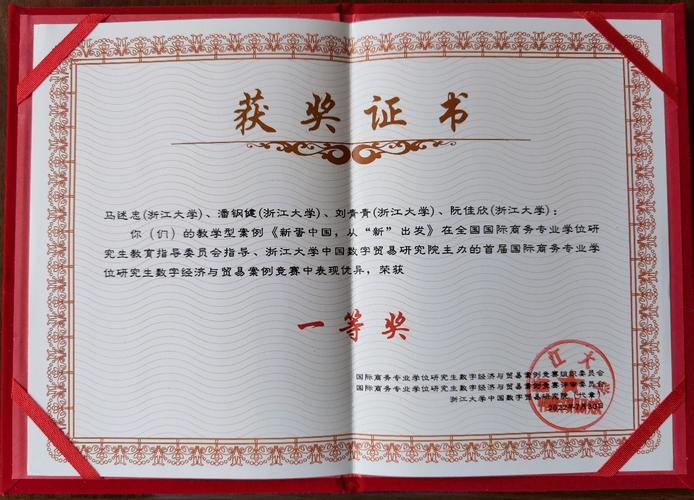 获奖证书
马述忠(浙江大学)、潘钢健(浙江大学)、刘青青(浙江大学)、阮佳欣(浙江大学)：
你（们）的教学型案例《新晋中国，从“新”出发》在全国国际商务专业学位研
究生教育指导委员会指导、浙江大学中国数字贸易研究院主办的首届国际商务专业学
位研究生数字经济与贸易案例竞赛中表现优异，荣获
一等奖
国际商务专业学位研究生数字经济与贸易案例竞赛组织委员会
国际商务专业学位研究生数字经济与贸易案例竞赛评审委员会
浙江大学中国数字贸易研究院（代章）